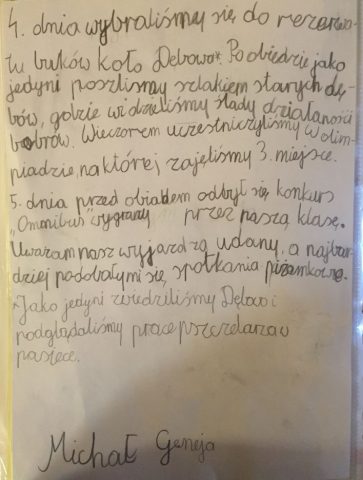 4. dnia wybraliśmy się do rezerwa-
tu buków koło Dębowo*. Po obiedzie jako
jedyni poszliśmy szlakiem starych dę-
bów, gdzie widzieliśmy ślady działaności
bobrów. Wieczorem uczestniczyliśmy w olim-
piadzie, na której zajeliśmy 3. miejsce.
5. dnia przed obiadem odbył się konkurs
„Omnibus" wygrany przez naszą klasę.
Uważam nasz wyjazd za udany, a najbar-
dziej podobały mi się, spotkania piżamkowe.
*Jako jedyni zwiedziliśmy Dębowo i
podglądaliśmy prace pszczelarza w
pasiece.
Michał Geneja